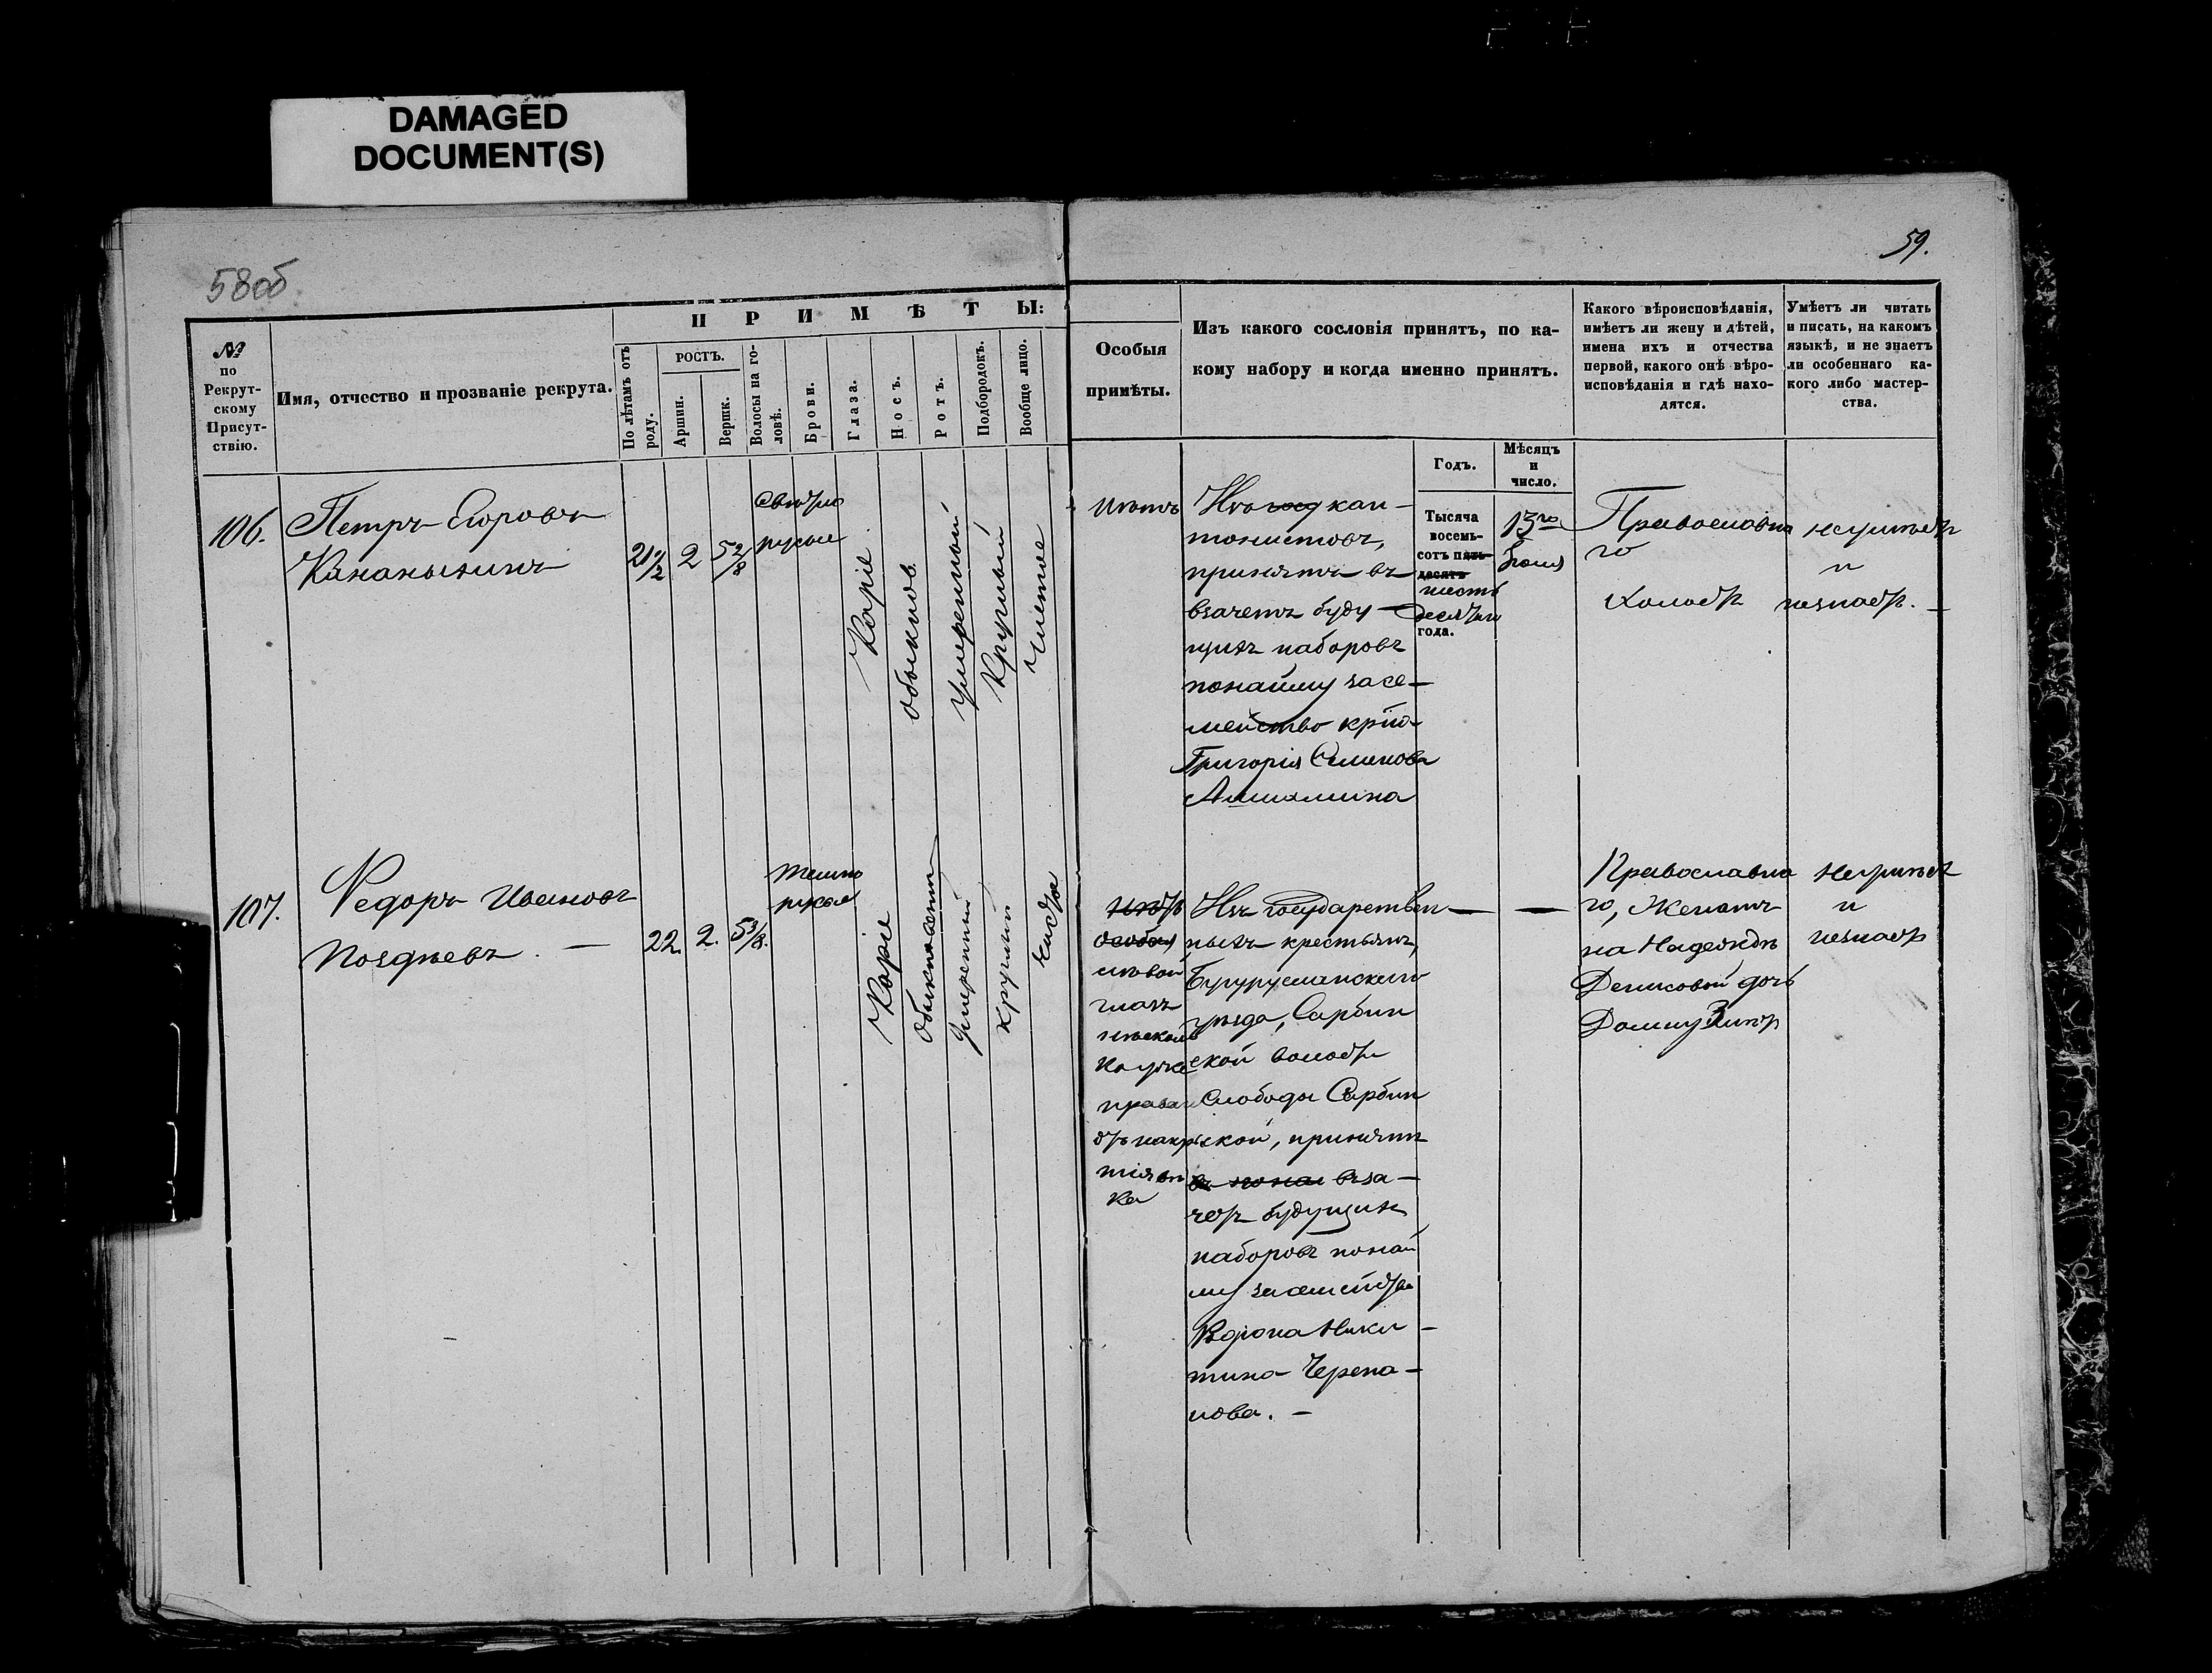 DAMAGED
DOCUMENT(S)
58об
59.
№
по
Рекрут-
скому
Присут-
ствію.
Имя, отчество и прозваніе рекрута.
П Р И М Ѣ Т Ы:
По лѣтамъ отъ
роду.
РОСТЪ.
Аршин.
Вершк.
Волосы на го-
ловѣ.
Брови.
Глаза.
Носъ.
Ротъ.
Подбородокъ.
Вообще лицо.
Особыя
примѣты.
Изъ какого сословія принятъ, по ка-
кому набору и когда именно принятъ.
Годъ.
Мѣсяцъ
и
число.
Какого вѣроисповѣданія,
имѣетъ ли жену и дѣтей,
имена ихъ и отчества
первой, какого онѣ вѣро-
исповѣданія и гдѣ нахо-
дятся.
Умѣетъ ли читать
и писать, на какомъ
языкѣ, и не знаетъ
ли особеннаго ка-
кого либо мастер-
ства.
106.
Петръ Егоровъ
Кананыхинъ
21 1/2
2
5 2/8
Светло
русые
Каріе
обыкнов.
умеренный
Круглый
Чистое
нѣтъ
Изъ кан-
тонистовъ,
принятъ въ
взачетъ буду-
щихъ наборовъ
понайму засе-
мейство кр\u0442на
Григорія Семенова
Тысяча
восемь-
сотъ пять-
десятъ
шесть
десятъ
года.
13го
Православна
го
Холостъ
неумѣетъ
и
незнаетъ.
107.
Федоръ Ивановъ
Позднѣевъ. —
22.
2.
5 3/8.
темно
русые
Каріе
обыкновенн
Умеренный
круглый
чистое
нѣтъ
особых
лѣвой
глазъ
Изъ государствен
ныхъ крестьянъ,
Бугурусланскаго
уѣзда, Сарбин
ской волости
Слободы Сарбин
ской, принятъ
въ понай вза-
четъ будущихъ
наборовъ понай
му засемейство
Ники-
тина Черепа-
нова. —
—
—
Православна
го, Женатъ
на Надеждѣ
Денисовой дочь
Домну 3 лѣтъ
Неумѣетъ
и
незнаетъ